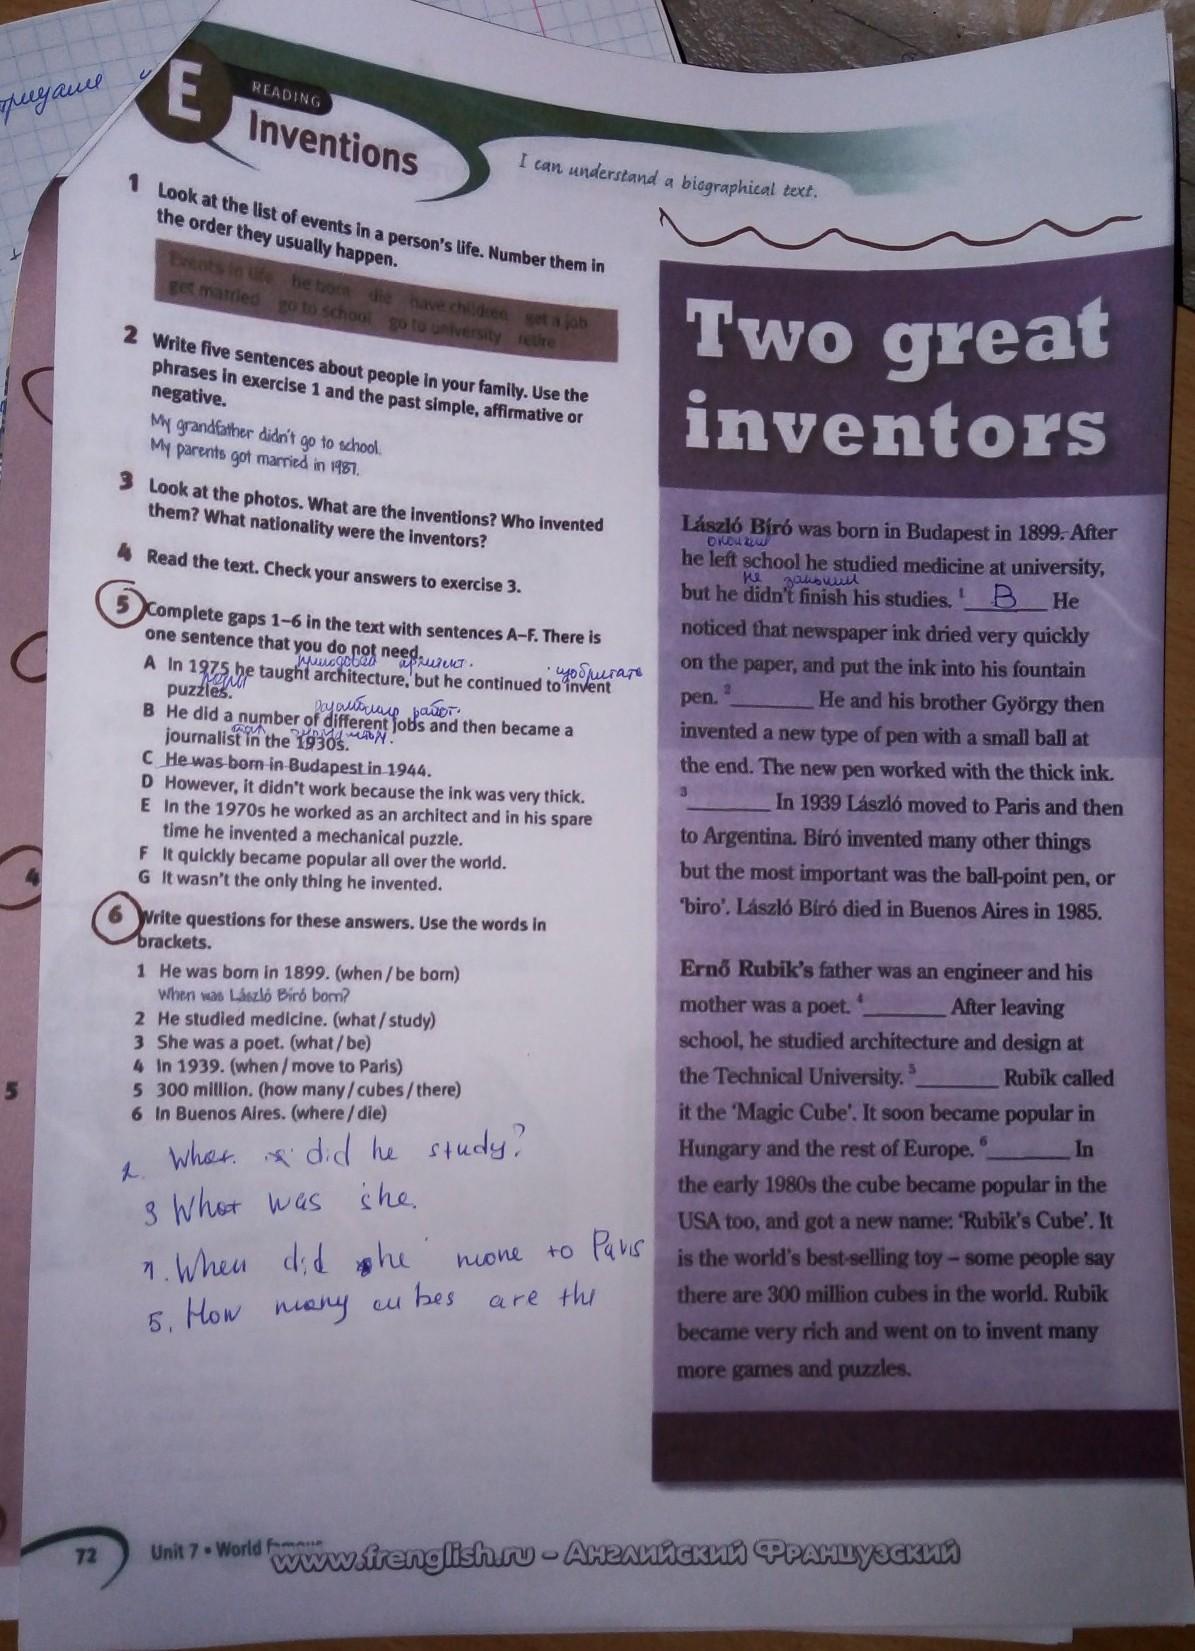 E
READING
Inventions
I can understand a biographical text.
1 Look at the list of events in a person's life. Number them in
the order they usually happen.
Events in life be born die have children get a job
get married go to school go to university retire
2 Write five sentences about people in your family. Use the
phrases in exercise 1 and the past simple, affirmative or
negative.
My grandfather didn't go to school.
My parents got married in 1987.
3 Look at the photos. What are the inventions? Who invented
them? What nationality were the inventors?
4 Read the text. Check your answers to exercise 3.
5 Complete gaps 1–6 in the text with sentences A–F. There is
one sentence that you do not need.
A In 1975 he taught architecture, but he continued to invent
puzzles.
B He did a number of different jobs and then became a
journalist in the 1930s.
C He was born in Budapest in 1944.
D However, it didn't work because the ink was very thick.
E In the 1970s he worked as an architect and in his spare
time he invented a mechanical puzzle.
F It quickly became popular all over the world.
G It wasn't the only thing he invented.
4
6 Write questions for these answers. Use the words in
brackets.
1 He was born in 1899. (when / be born)
When was László Bíró born?
2 He studied medicine. (what / study)
3 She was a poet. (what / be)
4 In 1939. (when / move to Paris)
5 300 million. (how many / cubes / there)
6 In Buenos Aires. (where / die)
5
2. What did he study?
3 What was she.
When did he move to Paris
5. How many cubes are the
Two great
inventors
László Bíró was born in Budapest in 1899. After
he left school he studied medicine at university,
не
but he didn't finish his studies. 1 B He
noticed that newspaper ink dried very quickly
on the paper, and put the ink into his fountain
pen. 2 ________ He and his brother György then
invented a new type of pen with a small ball at
the end. The new pen worked with the thick ink.
3 ________ In 1939 László moved to Paris and then
to Argentina. Bíró invented many other things
but the most important was the ball-point pen, or
'biro'. László Bíró died in Buenos Aires in 1985.
Ernő Rubik's father was an engineer and his
mother was a poet. 4 ________ After leaving
school, he studied architecture and design at
the Technical University. 5 ________ Rubik called
it the 'Magic Cube'. It soon became popular in
Hungary and the rest of Europe. 6 ________ In
the early 1980s the cube became popular in the
USA too, and got a new name: 'Rubik's Cube'. It
is the world's best-selling toy – some people say
there are 300 million cubes in the world. Rubik
became very rich and went on to invent many
more games and puzzles.
72 Unit 7 • World Famous
www.frenglish.ru - Английский Французский